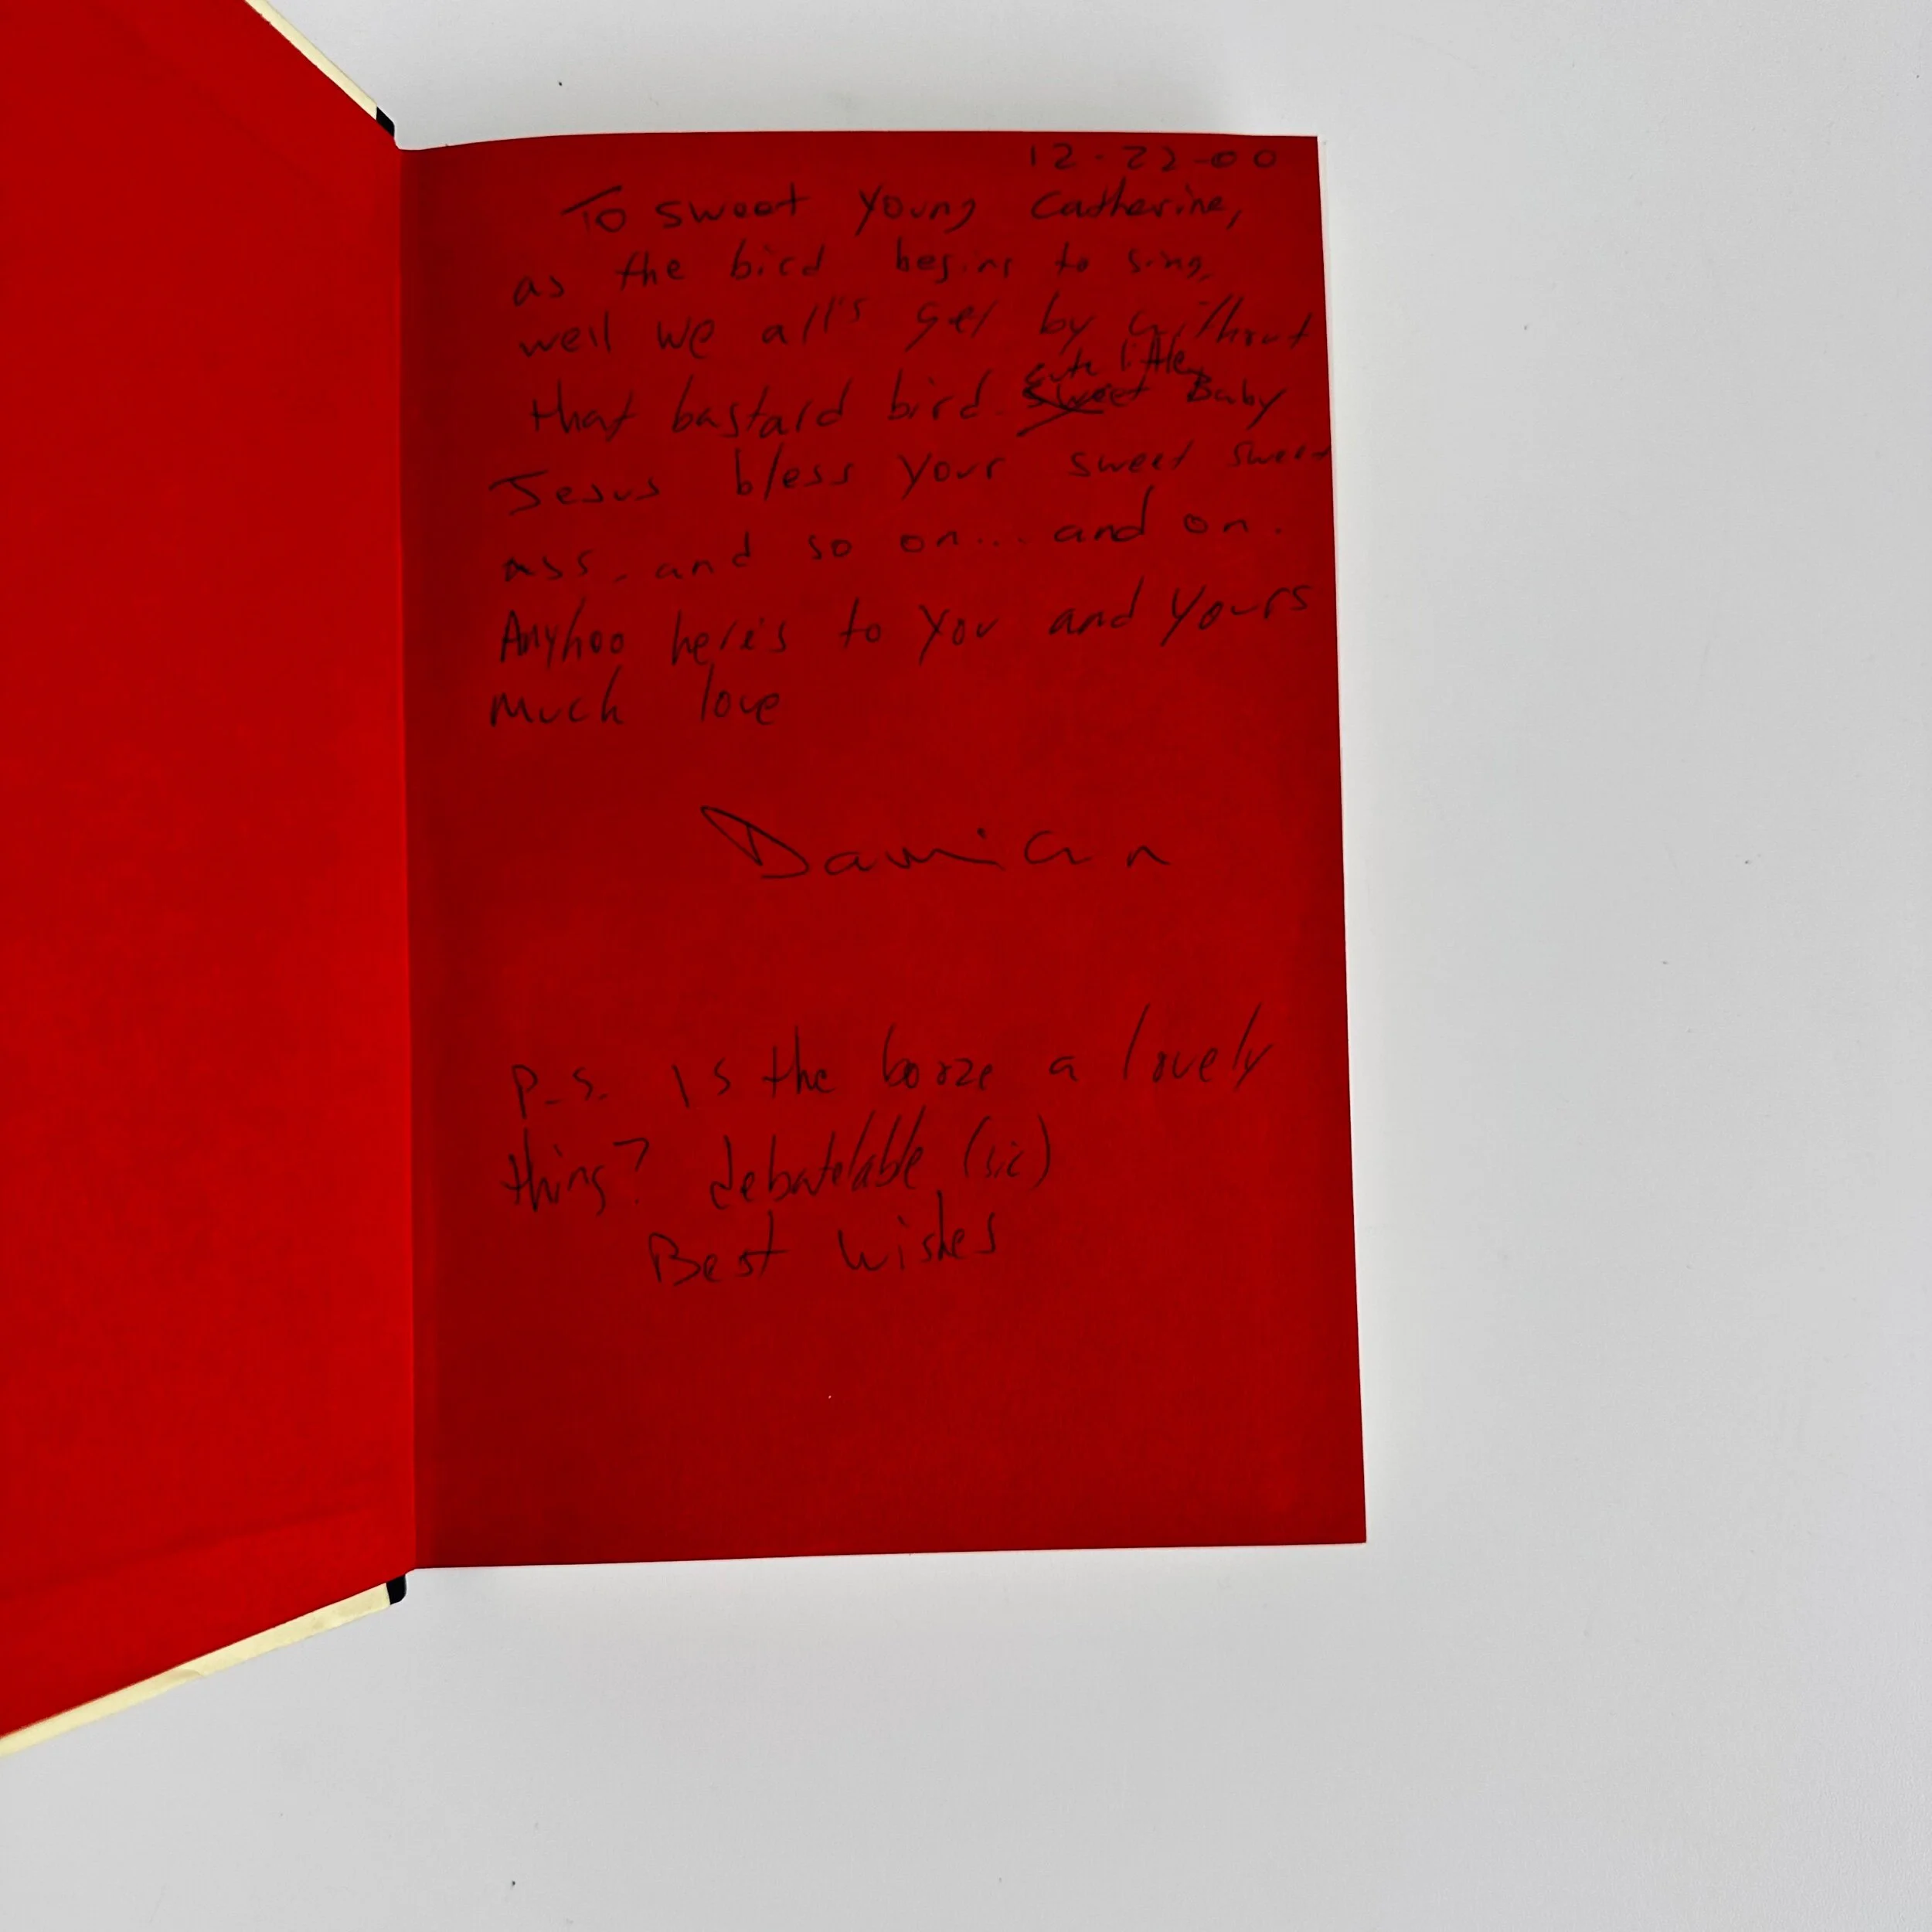 12-22-00
To sweet young Catherine,
as the bird begins to sing,
well we all's get by without
that bastard bird. cute little Baby
Jesus bless your sweet sweet
ass, and so on... and on.
Anyhoo here's to you and yours
much love
Damian
P.S. Is the booze a lovely
thing? debatelable (sic)
Best wishes